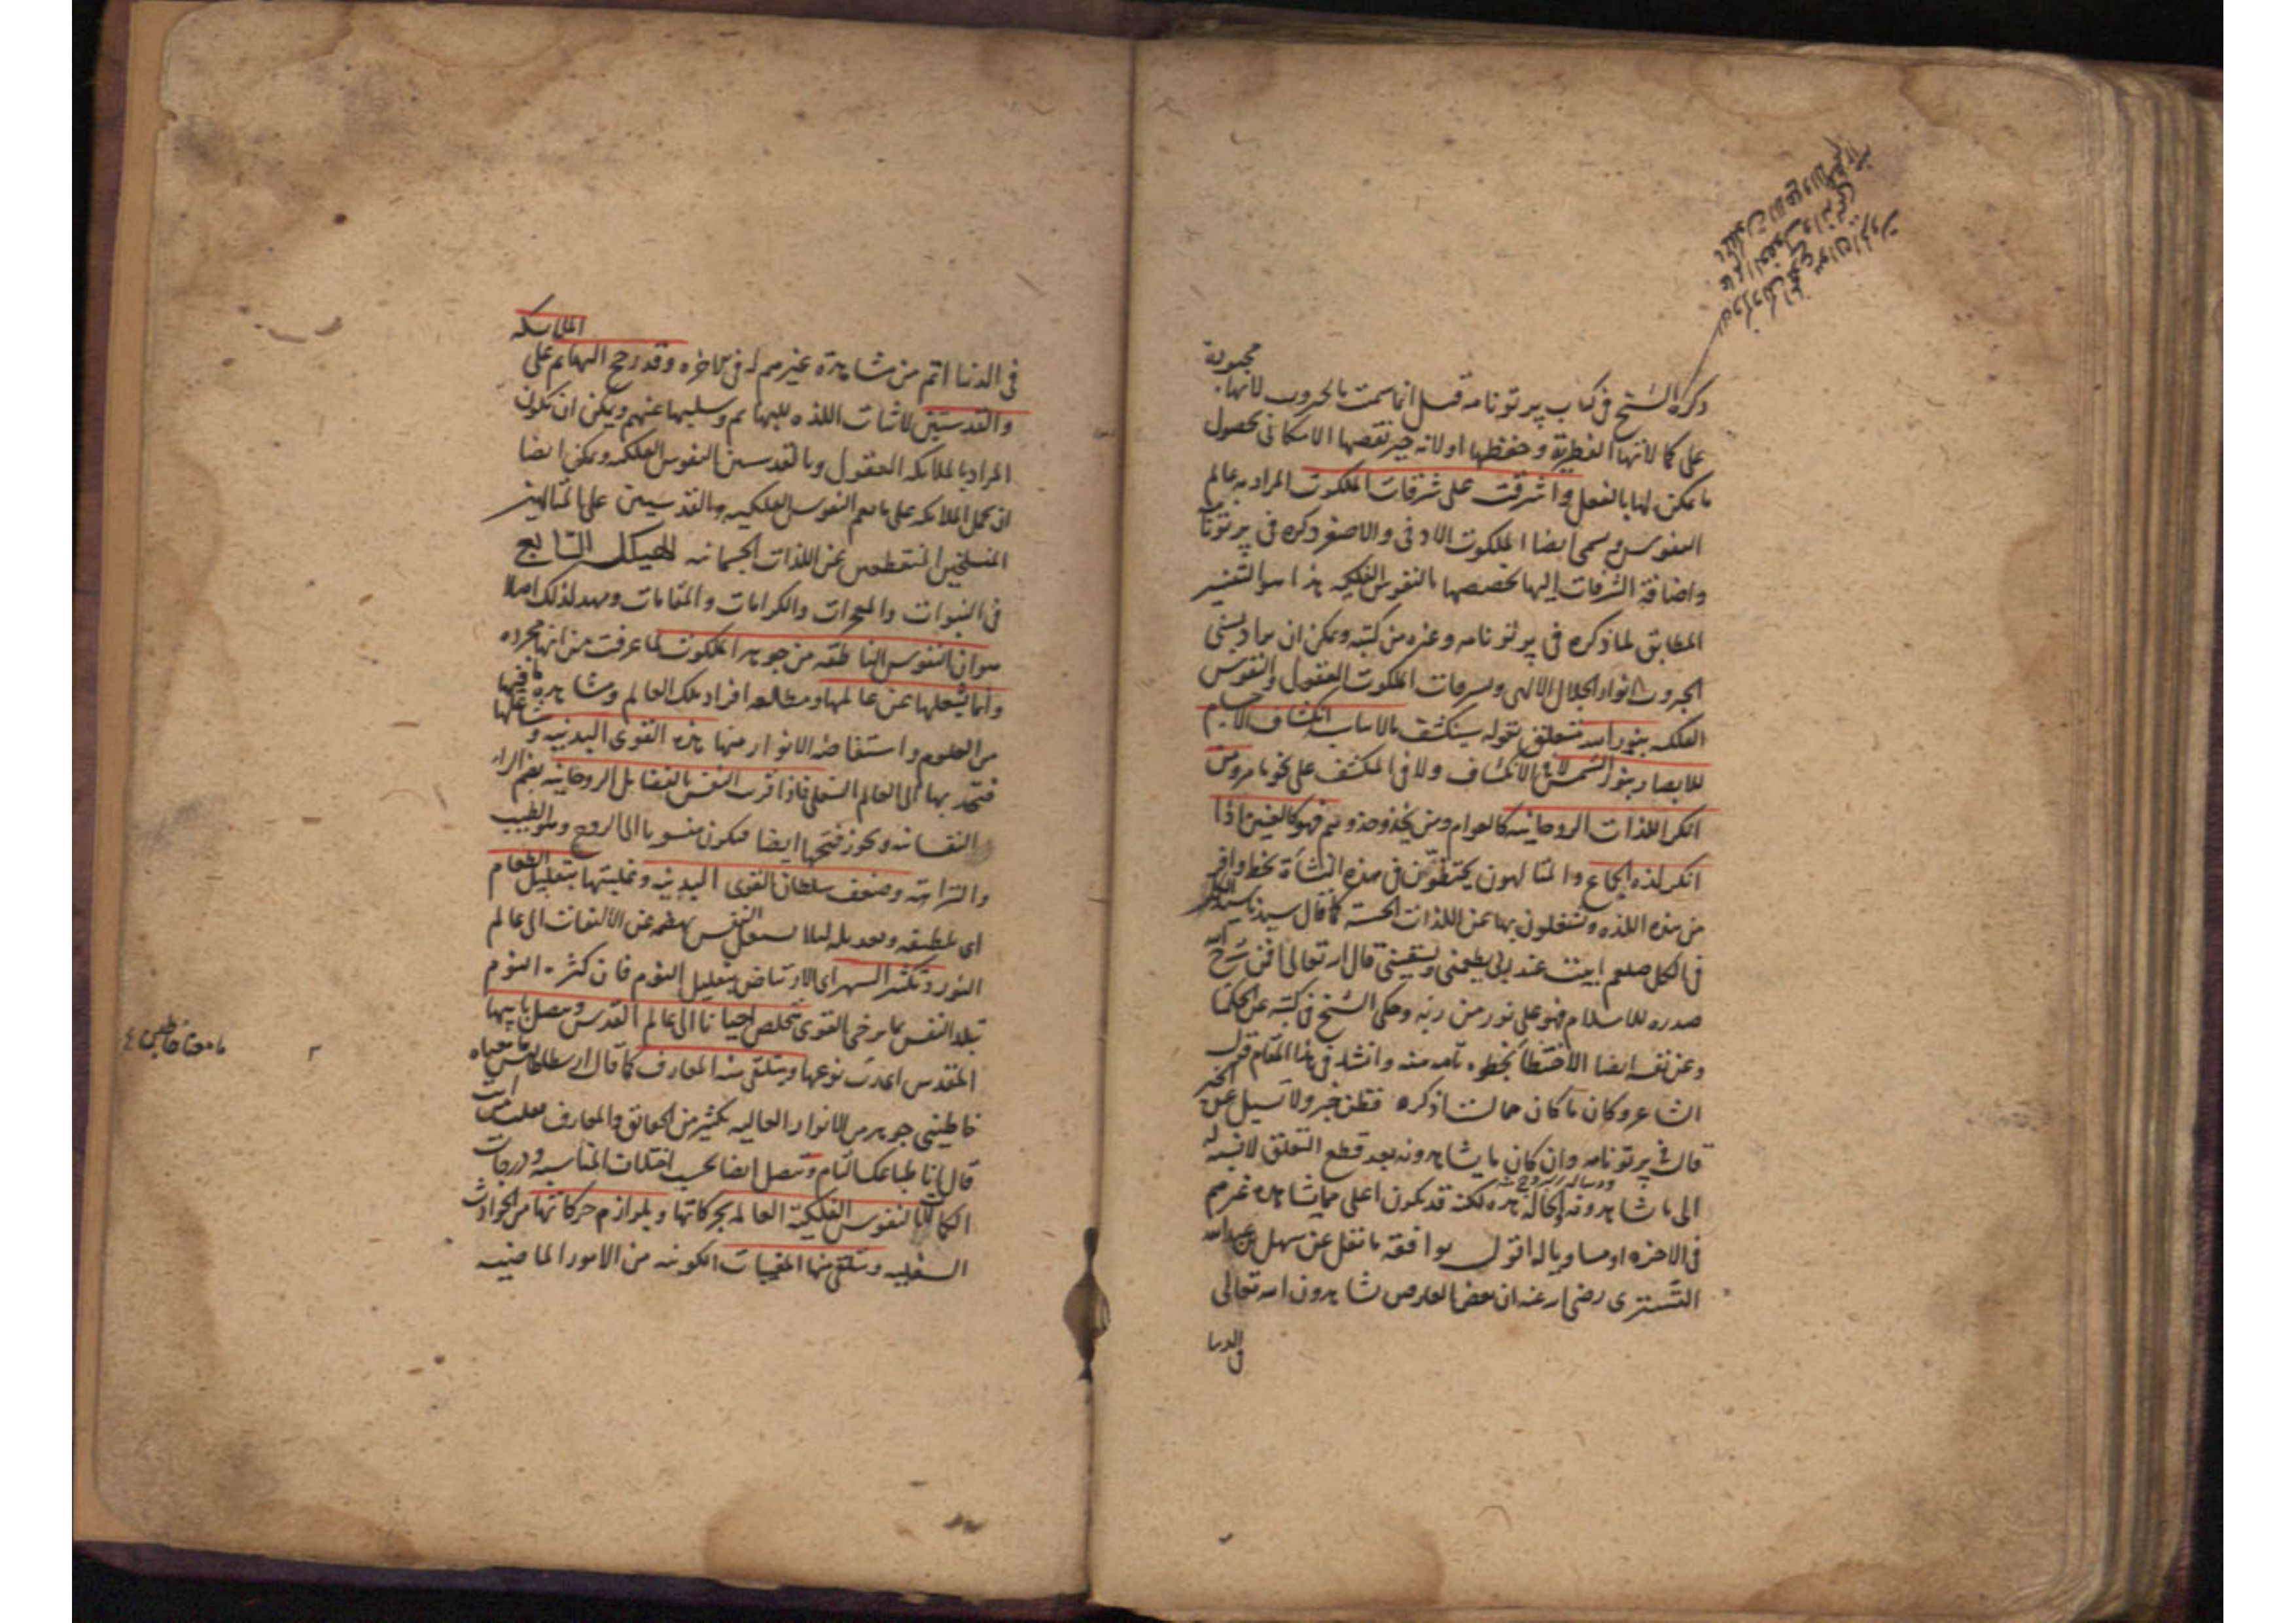 ذكره الشيخ في كتاب پرتونامه قيل انما سميت بالجبروت لانها مجبورة
على كمالاتها الفطرية وحفظها او لانه جبر نقصها الامكاني بحصول
ما يمكن لها بالفعل واشرقت على شرفات الملكوت المراد به عالم
النفوس ويسمى ايضا الملكوت الادنى والاصغر ذكره في پرتونا
واضافة الشرفات اليها لخصصها بالنفوس الفلكيه هذا هو التفسير
المطابق لما ذكره في پرتونامه وغيره من كتبه ويمكن ان يراد بسنى
الجبروت انوار الجلال الالهى وبشرفات الملكوت العقول والنفوس
الفلكيه بنور الله متعلق بقوله سينكشف بالاسباب انكشاف الاجسام
للابصار بنور الشمس لا في الانكشاف ولا في المنكشف على نحو ما مر ومن
انكر اللذات الروحانيه كالعوام ومن يحذو حذوهم فهو كالعنين اذا
انكر لذة الجماع والمتالهون يحتظون في هذه النشأة بحظ وافر
من هذه اللذه ويشغلون بها عن اللذات الحسيه كما قال سيدنا سيد الكل
في الكل صلعم ابيت عند ربى يطعمنى ويسقينى قال الله تعالى افمن شرح الله
صدره للاسلام فهو على نور من ربه وحكى الشيخ في كتبه عن الحكما
وعن نفسه ايضا الاحتظا بخطوه تامه منه وانشد في هذا المقام قول
الشاعر وكان ما كان مما لست اذكره فظن خيرا ولا تسئل عن الخبر
قال في پرتونامه وان كان ما يشاهدونه بعد قطع التعلق لا نسبة له
الى ما شاهدونه والحاله هذه لكنه قد يكون اعلى مما يشاهده غيرهم
في الاخره او مساويا له اقول يوافقه ما نقل عن سهل بن عبد الله
التسترى رضى الله عنه ان بعض العارفين يشاهدون الله تعالى
في الدنيا
في الدنيا اتم من مشاهدة غيرهم له في الاخره وقد رجح البهائم على الملائكه
والقدسيين لاثبات اللذه للبهائم وسلبها عنهم ويمكن ان يكون
المراد بالملائكه العقول وبالقدسيين النفوس الفلكيه ويمكن ايضا
ان يحمل الملائكه على ما يعم النفوس الفلكيه والقدسيين على المتالهين
المنسلخين المنقطعين عن اللذات الجسمانيه الهيكل السابع
في النبوات والمعجزات والكرامات والمنامات ومهد لذلك اصلا
هو ان النفوس الناطقه من جوهر الملكوت لما عرفت من انها مجرده
وانما يشغلها عن عالمها ومطالعه افراد ذلك العالم ومشاهدة ما فيها
من العلوم واستفاضة الانوار منها هذه القوى البدنيه ومشاغلها
فتنجذب بها الى العالم السفلى فاذا قويت النفس بالفضايل الروحانيه بضم الراء
النفسانيه ويجوز فتحها ايضا فيكون منسوبا الى الروح وهو الطيب
والنزاهة وضعف سلطان القوى البدنيه وغلبتها بتقليل الطعام
اى تلطيفه وتعديله لئلا يشتغل النفس بهضمه عن الالتفات الى عالم
النور وتكثير السهر اى الارتياض بتقليل النوم فان كثرة النوم
تبلد النفس بما يرخى القوى تتخلص احيانا الى عالم القدس وتتصل بابيها
المقدس اى رب نوعها ويتلقى منه المعارف كما قال ارسطاطاليس
خاطبنى جوهر من الانوار العاليه بكثير من الحقائق والمعارف فقلت من انت
قال انا طباعك التام وتتصل ايضا بحسب اختلاف المناسبه ودرجات
الكمالات بالنفوس الفلكيه العالمه بحركاتها وبلوازم حركاتها من الحوادث
السفليه وتتلقى منها المغيبات الكونيه من الامور الماضيه